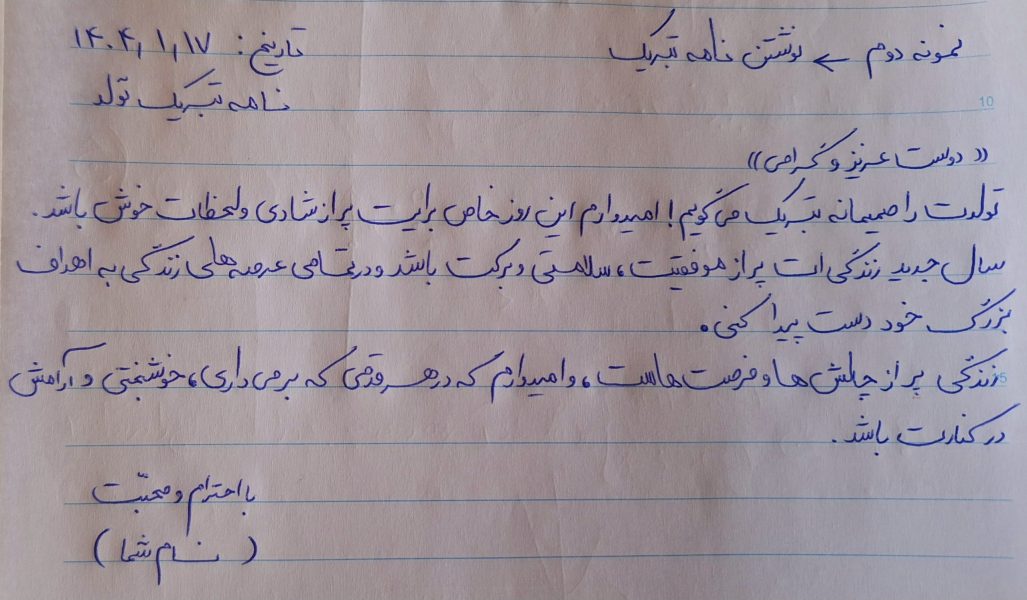 نمونه دوم ← نوشتن نامه تبریک
تاریخ: ۱۴۰۴٫۱٫۱۷
نامه تبریک تولد
10
«دوست عزیز و گرامی»
تولدت را صمیمانه تبریک می‌گویم! امیدوارم این روز خاص برایت پر از شادی و لحظات خوش باشد.
سال جدید زندگی‌ات پر از موفقیت، سلامتی و برکت باشد و در تمامی عرصه‌های زندگی به اهداف
بزرگ خود دست پیدا کنی.
زندگی پر از چالش‌ها و فرصت‌هاست، و امیدوارم که در هر قدمی که برمی‌داری، خوشبختی و آرامش
در کنارت باشد.
با احترام و محبّت
(نام شما)